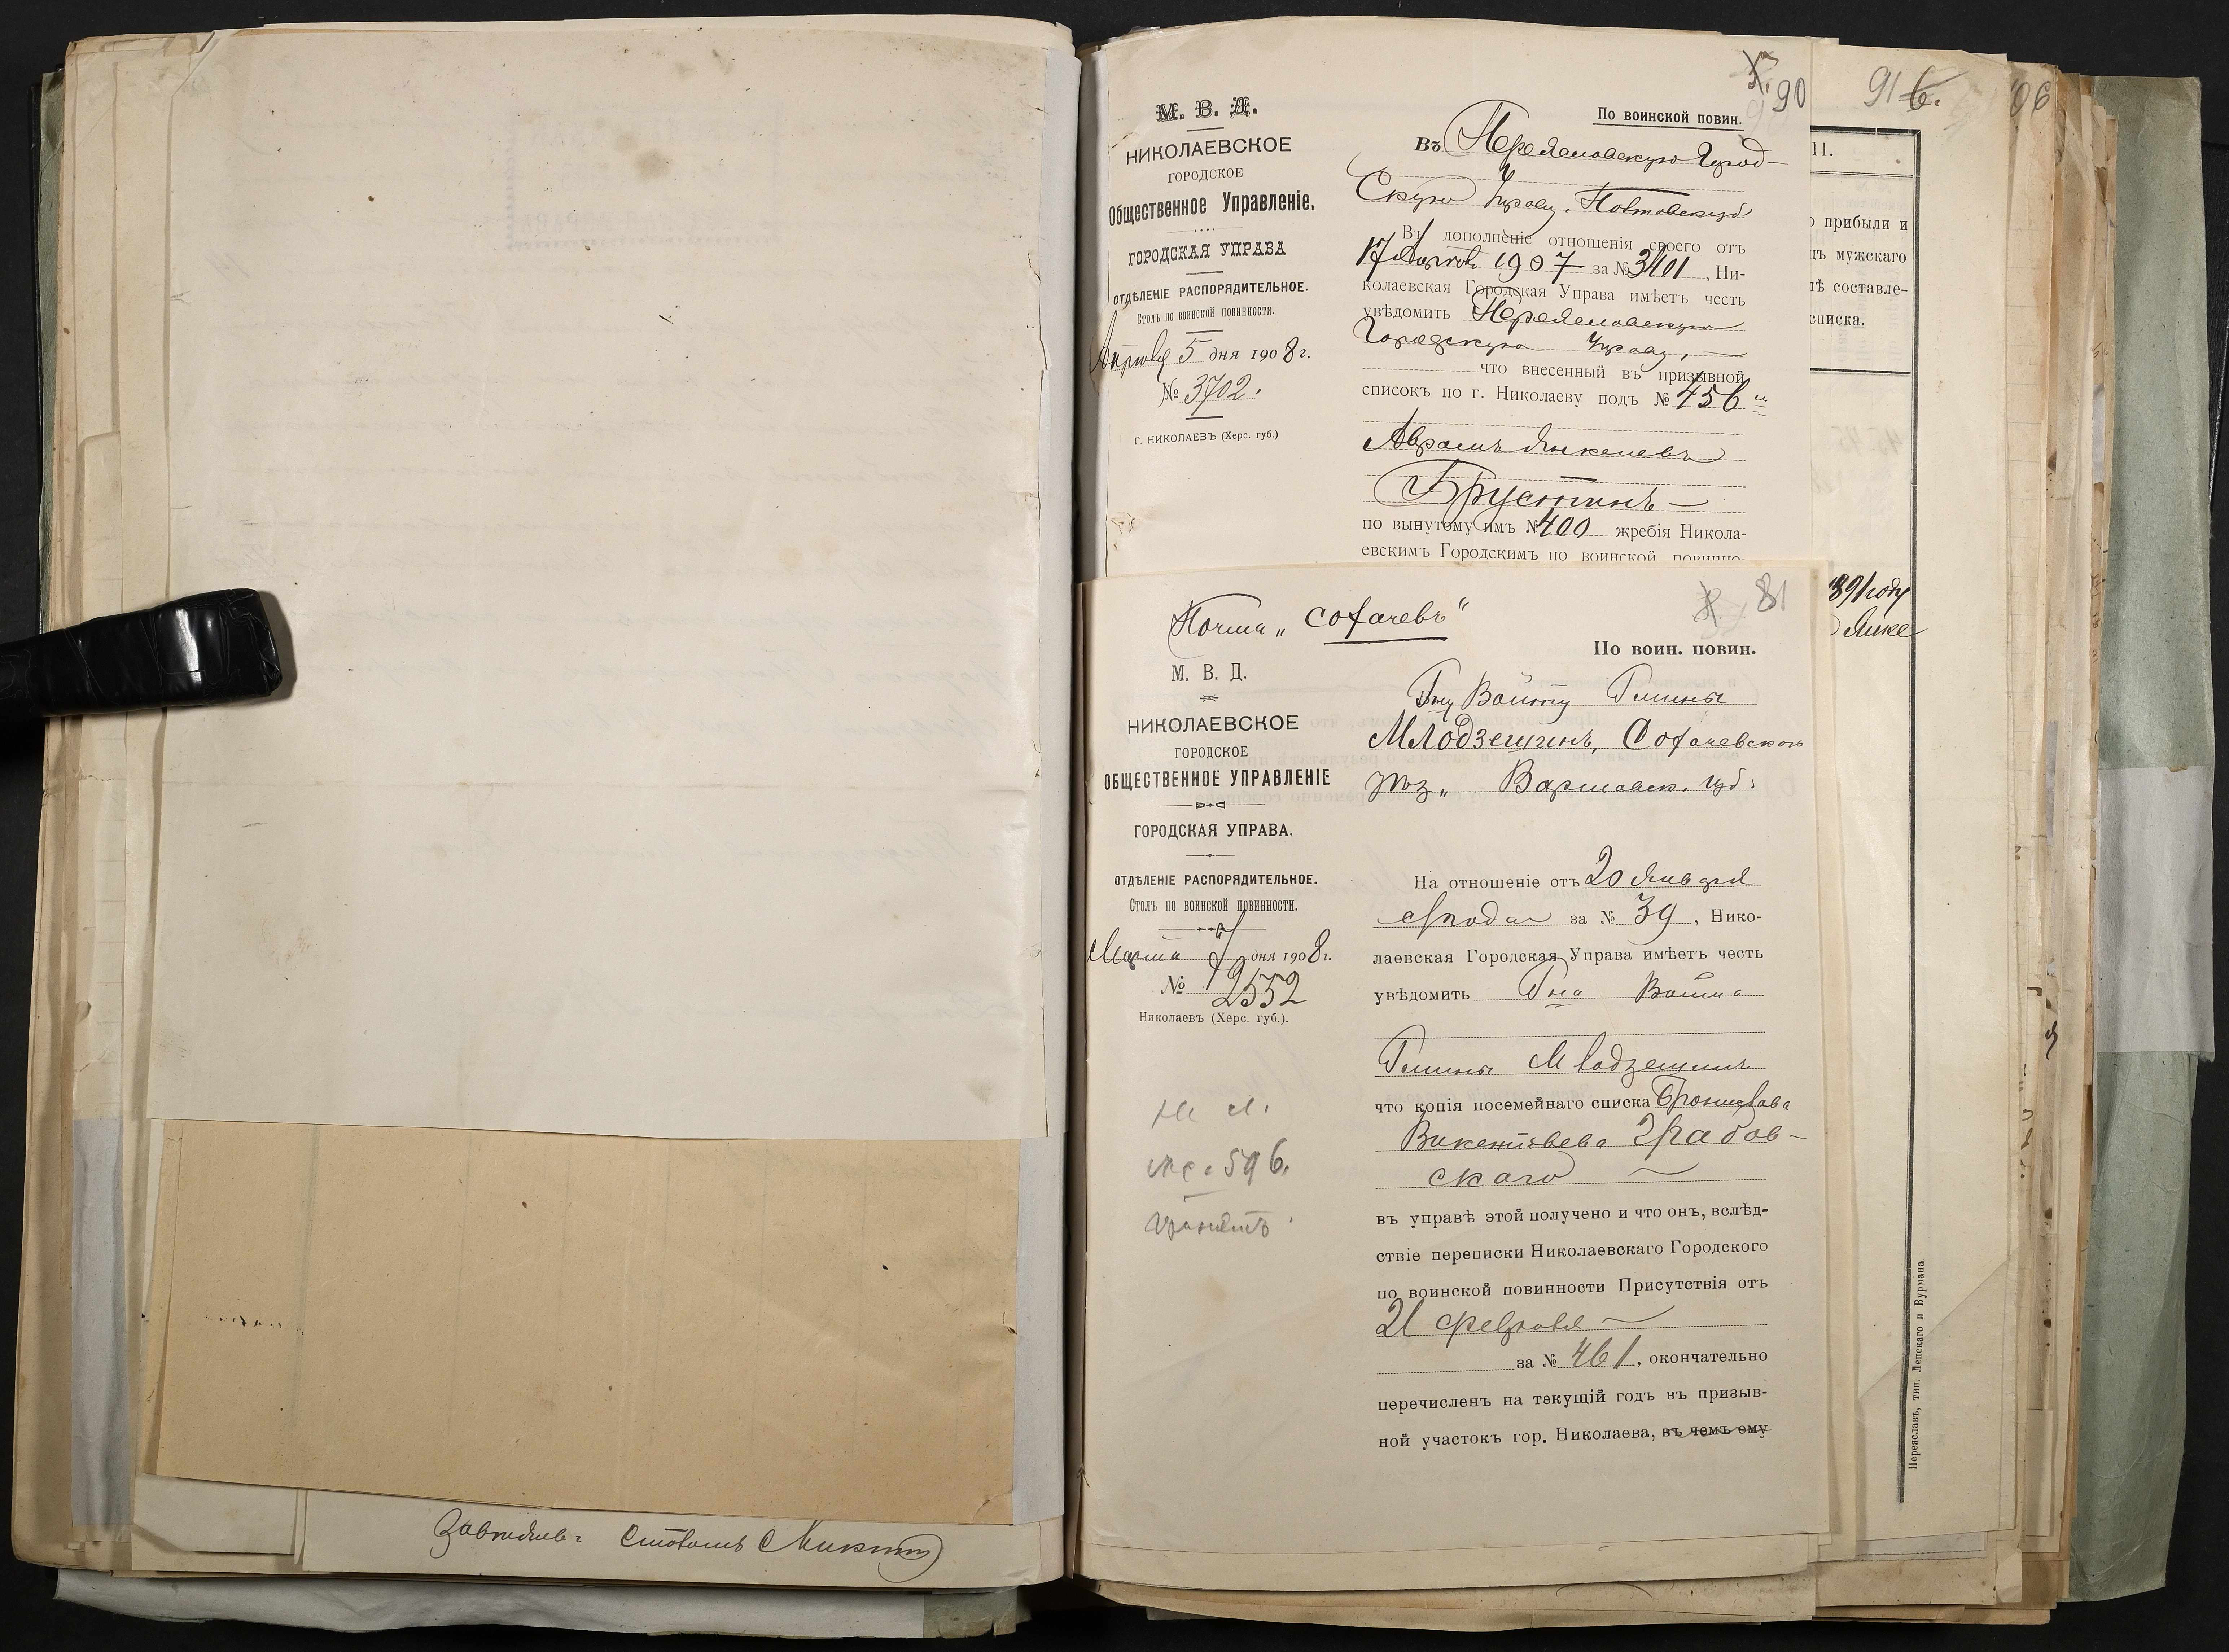 Завѣдыв. Столомъ
90
М. В. Д.
НИКОЛАЕВСКОЕ
ГОРОДСКОЕ
Общественное Управленіе.
ГОРОДСКАЯ УПРАВА
ОТДѢЛЕНІЕ РАСПОРЯДИТЕЛЬНОЕ.
Столъ по воинской повинности.
Апрѣля 5 дня 1908 г.
№ 3702.
г. НИКОЛАЕВЪ (Херс. губ.)
По воинской повин.
Въ Переяславскую Город-
скую Управу, Полтавск. губ.
Въ дополненіе отношенія своего отъ
17 1907 за № 3401, Ни-
колаевская Городская Управа имѣетъ честь
увѣдомить Переяславскую
Городскую Управу,
что внесенный въ призывной
списокъ по г. Николаеву подъ № 456
Аврамъ Янкелевъ
Брустинъ
по вынутому имъ № 400 жребія Никола-
евскимъ Городскимъ по воинской повинно-
81
Почта „Сохачевъ“
М. В. Д.
НИКОЛАЕВСКОЕ
ГОРОДСКОЕ
ОБЩЕСТВЕННОЕ УПРАВЛЕНІЕ
ГОРОДСКАЯ УПРАВА.
ОТДѢЛЕНІЕ РАСПОРЯДИТЕЛЬНОЕ.
Столъ по воинской повинности.
Марта 7 дня 1908 г.
№ 2552
Николаевъ (Херс. губ.).
596.
По воин. повин.
Гну Войту Гмины
Млодзешинъ, Сохачевскаго
уѣз„ Варшавск. губ.
На отношеніе отъ 20 Января
с/года за № 39, Нико-
лаевская Городская Управа имѣетъ честь
увѣдомить Гна Войта
Гмины Млодзешинъ
что копія посемейнаго списка Бронислава
Викентьева Грабов-
скаго
въ управѣ этой получено и что онъ, вслѣд-
ствіе переписки Николаевскаго Городского
по воинской повинности Присутствія отъ
21 февраля
за № 461, окончательно
перечисленъ на текущій годъ въ призыв-
ной участокъ гор. Николаева, въ чемъ ему
91 6.
11.
прибыли и
мужскаго
составле-
списка.
1891 году
Переяславъ, тип. Лепскаго и Вурмана
06